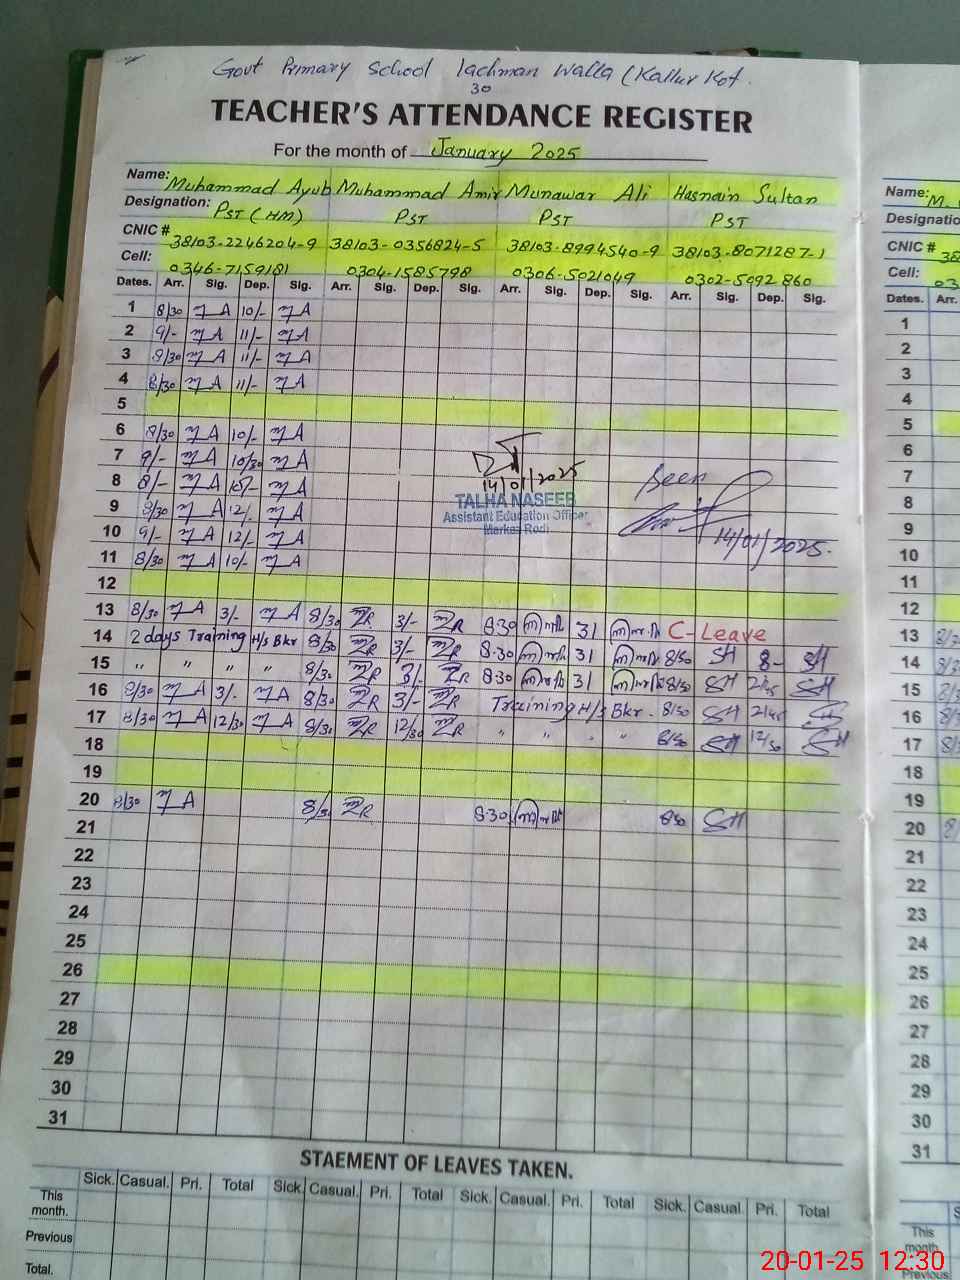 Govt Primary School lachman Walla (Kallur Kot.
30
TEACHER'S ATTENDANCE REGISTER
For the month of January 2025
Name: Muhammad Ayub Muhammad Amir Munawar Ali Hasnain Sultan
Designation: PST (HM) PST PST PST
CNIC # 38103-2246204-9 38103-0356824-5 38103-8994540-9 38103-8071287-1
Cell: 0346-7159181 0304-1585798 0306-5021049 0302-5092860
Dates. Arr. Sig. Dep. Sig. Arr. Sig. Dep. Sig. Arr. Sig. Dep. Sig. Arr. Sig. Dep. Sig.
1 8/30 MA 10/- MA
2 9/- MA 11/- MA
3 8/30 MA 11/- MA
4 8/30 MA 11/- MA
5
6 8/30 MA 10/- MA
7 9/- MA 10/30 MA
8 8/- MA MA
9 8/30 MA 12/- MA
10 9/- MA 12/- MA
11 8/30 MA 10/- MA
14/01/2025
TALHA NASEER
Assistant Education Officer
Markaz Rodi
Seen
14/01/2025.
12
13 8/30 MA 3/- MA 8/30 3/- 8.30 31 C-Leave
14 2 days Training H/s Bkr 8/30 3/- 8.30 31 8/30 SH 8- SH
15 " " " " 8/30 3/- 8.30 31 8/30 SH 2/45 SH
16 8/30 MA 3/- MA 8/30 3/- Training H/s Bkr. 8/30 SH 2/45 SH
17 8/30 MA 12/30 MA 8/30 12/30 " " " " 8/30 SH 12/30 SH
18
19
20 8/30 MA 8/3 8.30 8/30 SH
21
22
23
24
25
26
27
28
29
30
31
STAEMENT OF LEAVES TAKEN.
Sick. Casual. Pri. Total Sick. Casual. Pri. Total Sick. Casual. Pri. Total Sick. Casual. Pri. Total
This month.
Previous
Total.
Name: M.
Designation
CNIC # 38
Cell: 03
Dates Arr.
1
2
3
4
5
6
7
8
9
10
11
12
13 8/3
14 8/3
15 8/3
16 8/3
17 8/3
18
19
20 8/
21
22
23
24
25
26
27
28
29
30
31
S
This
month
Previous
20-01-25 12:30